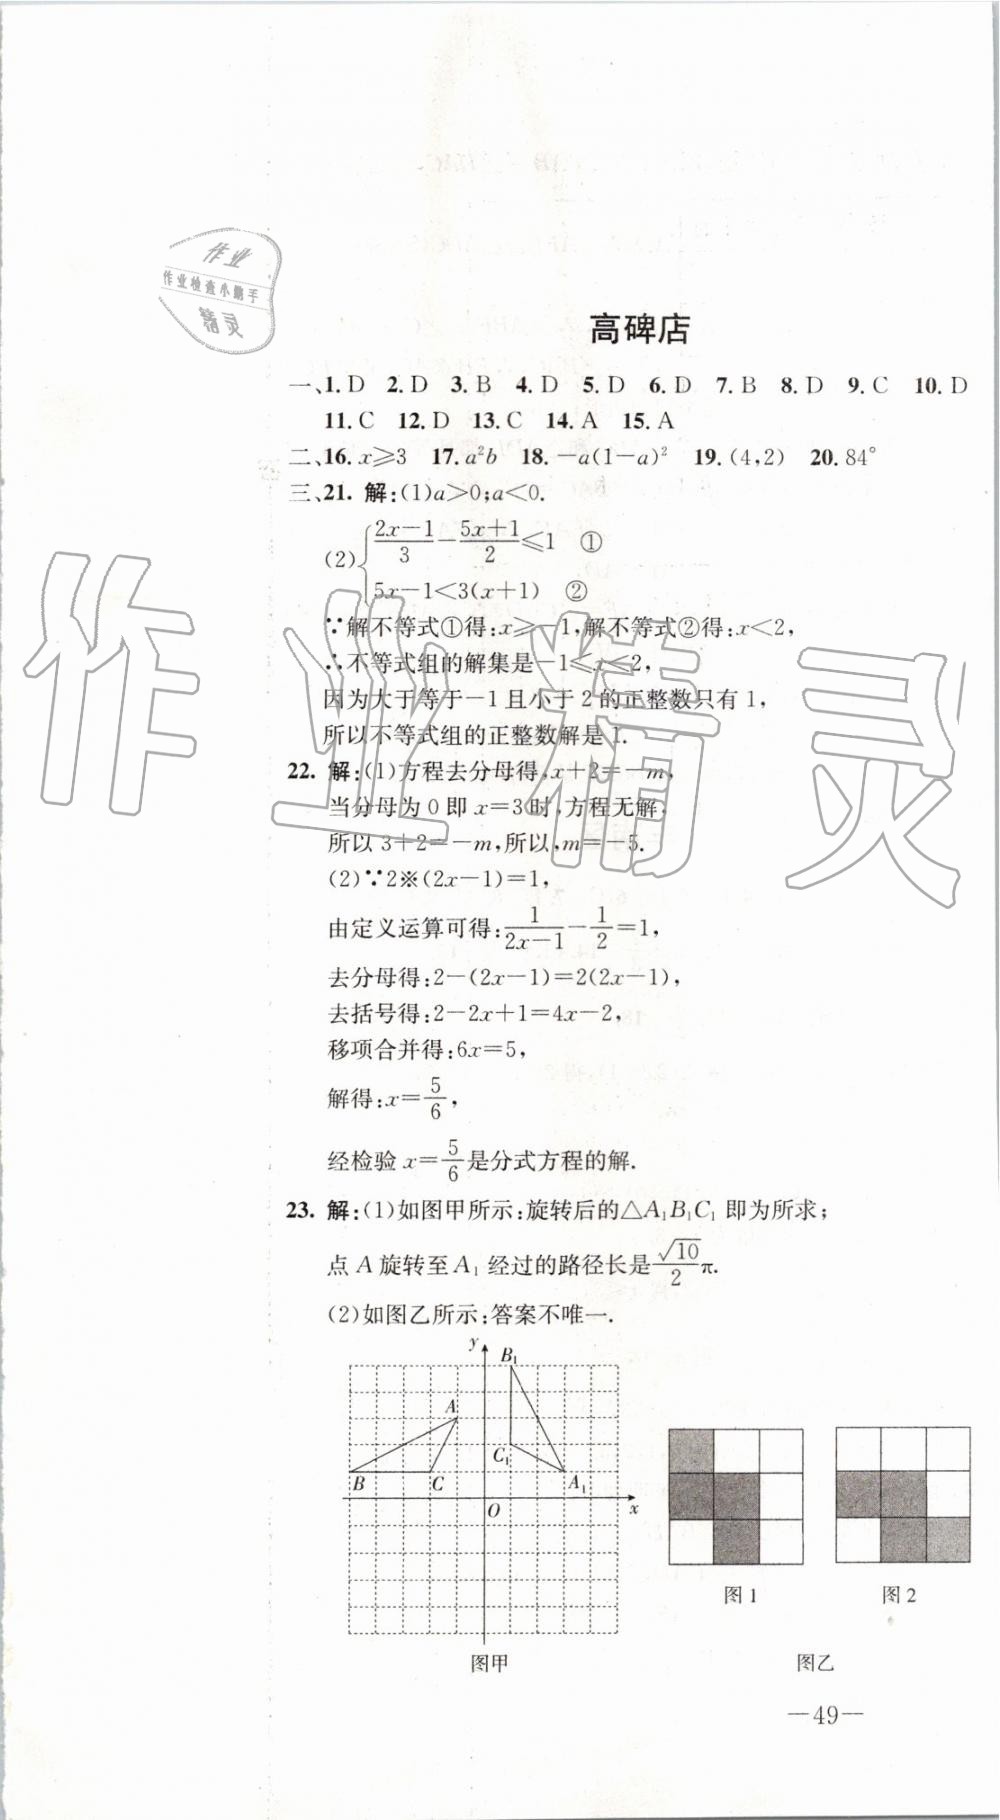 作业
作业检查小助手
精灵
高碑店
一、1. D 2. D 3. B 4. D 5. D 6. D 7. B 8. D 9. C 10. D
11. C 12. D 13. C 14. A 15. A
二、16. x≥3 17. a²b 18. －a(1－a)² 19. (4,2) 20. 84°
三、21. 解:(1)a＞0;a＜0.
(2){(2x－1)/3－(5x＋1)/2≤1 ①
5x－1＜3(x＋1) ②
∵解不等式①得:x≥－1,解不等式②得:x＜2,
∴不等式组的解集是－1≤x＜2,
因为大于等于－1且小于2的正整数只有1,
所以不等式组的正整数解是1.
22. 解:(1)方程去分母得,x＋2＝－m,
当分母为0即x＝3时,方程无解,
所以3＋2＝－m,所以,m＝－5.
(2)∵2※(2x－1)＝1,
由定义运算可得:1/(2x－1)－1/2＝1,
去分母得:2－(2x－1)＝2(2x－1),
去括号得:2－2x＋1＝4x－2,
移项合并得:6x＝5,
解得:x＝5/6,
经检验x＝5/6是分式方程的解.
23. 解:(1)如图甲所示:旋转后的△A₁B₁C₁即为所求;
点A旋转至A₁经过的路径长是√10/2π.
(2)如图乙所示:答案不唯一.
y
B₁
A
C₁
B C A₁
O x
图1 图2
图甲 图乙
—49—
作业精灵